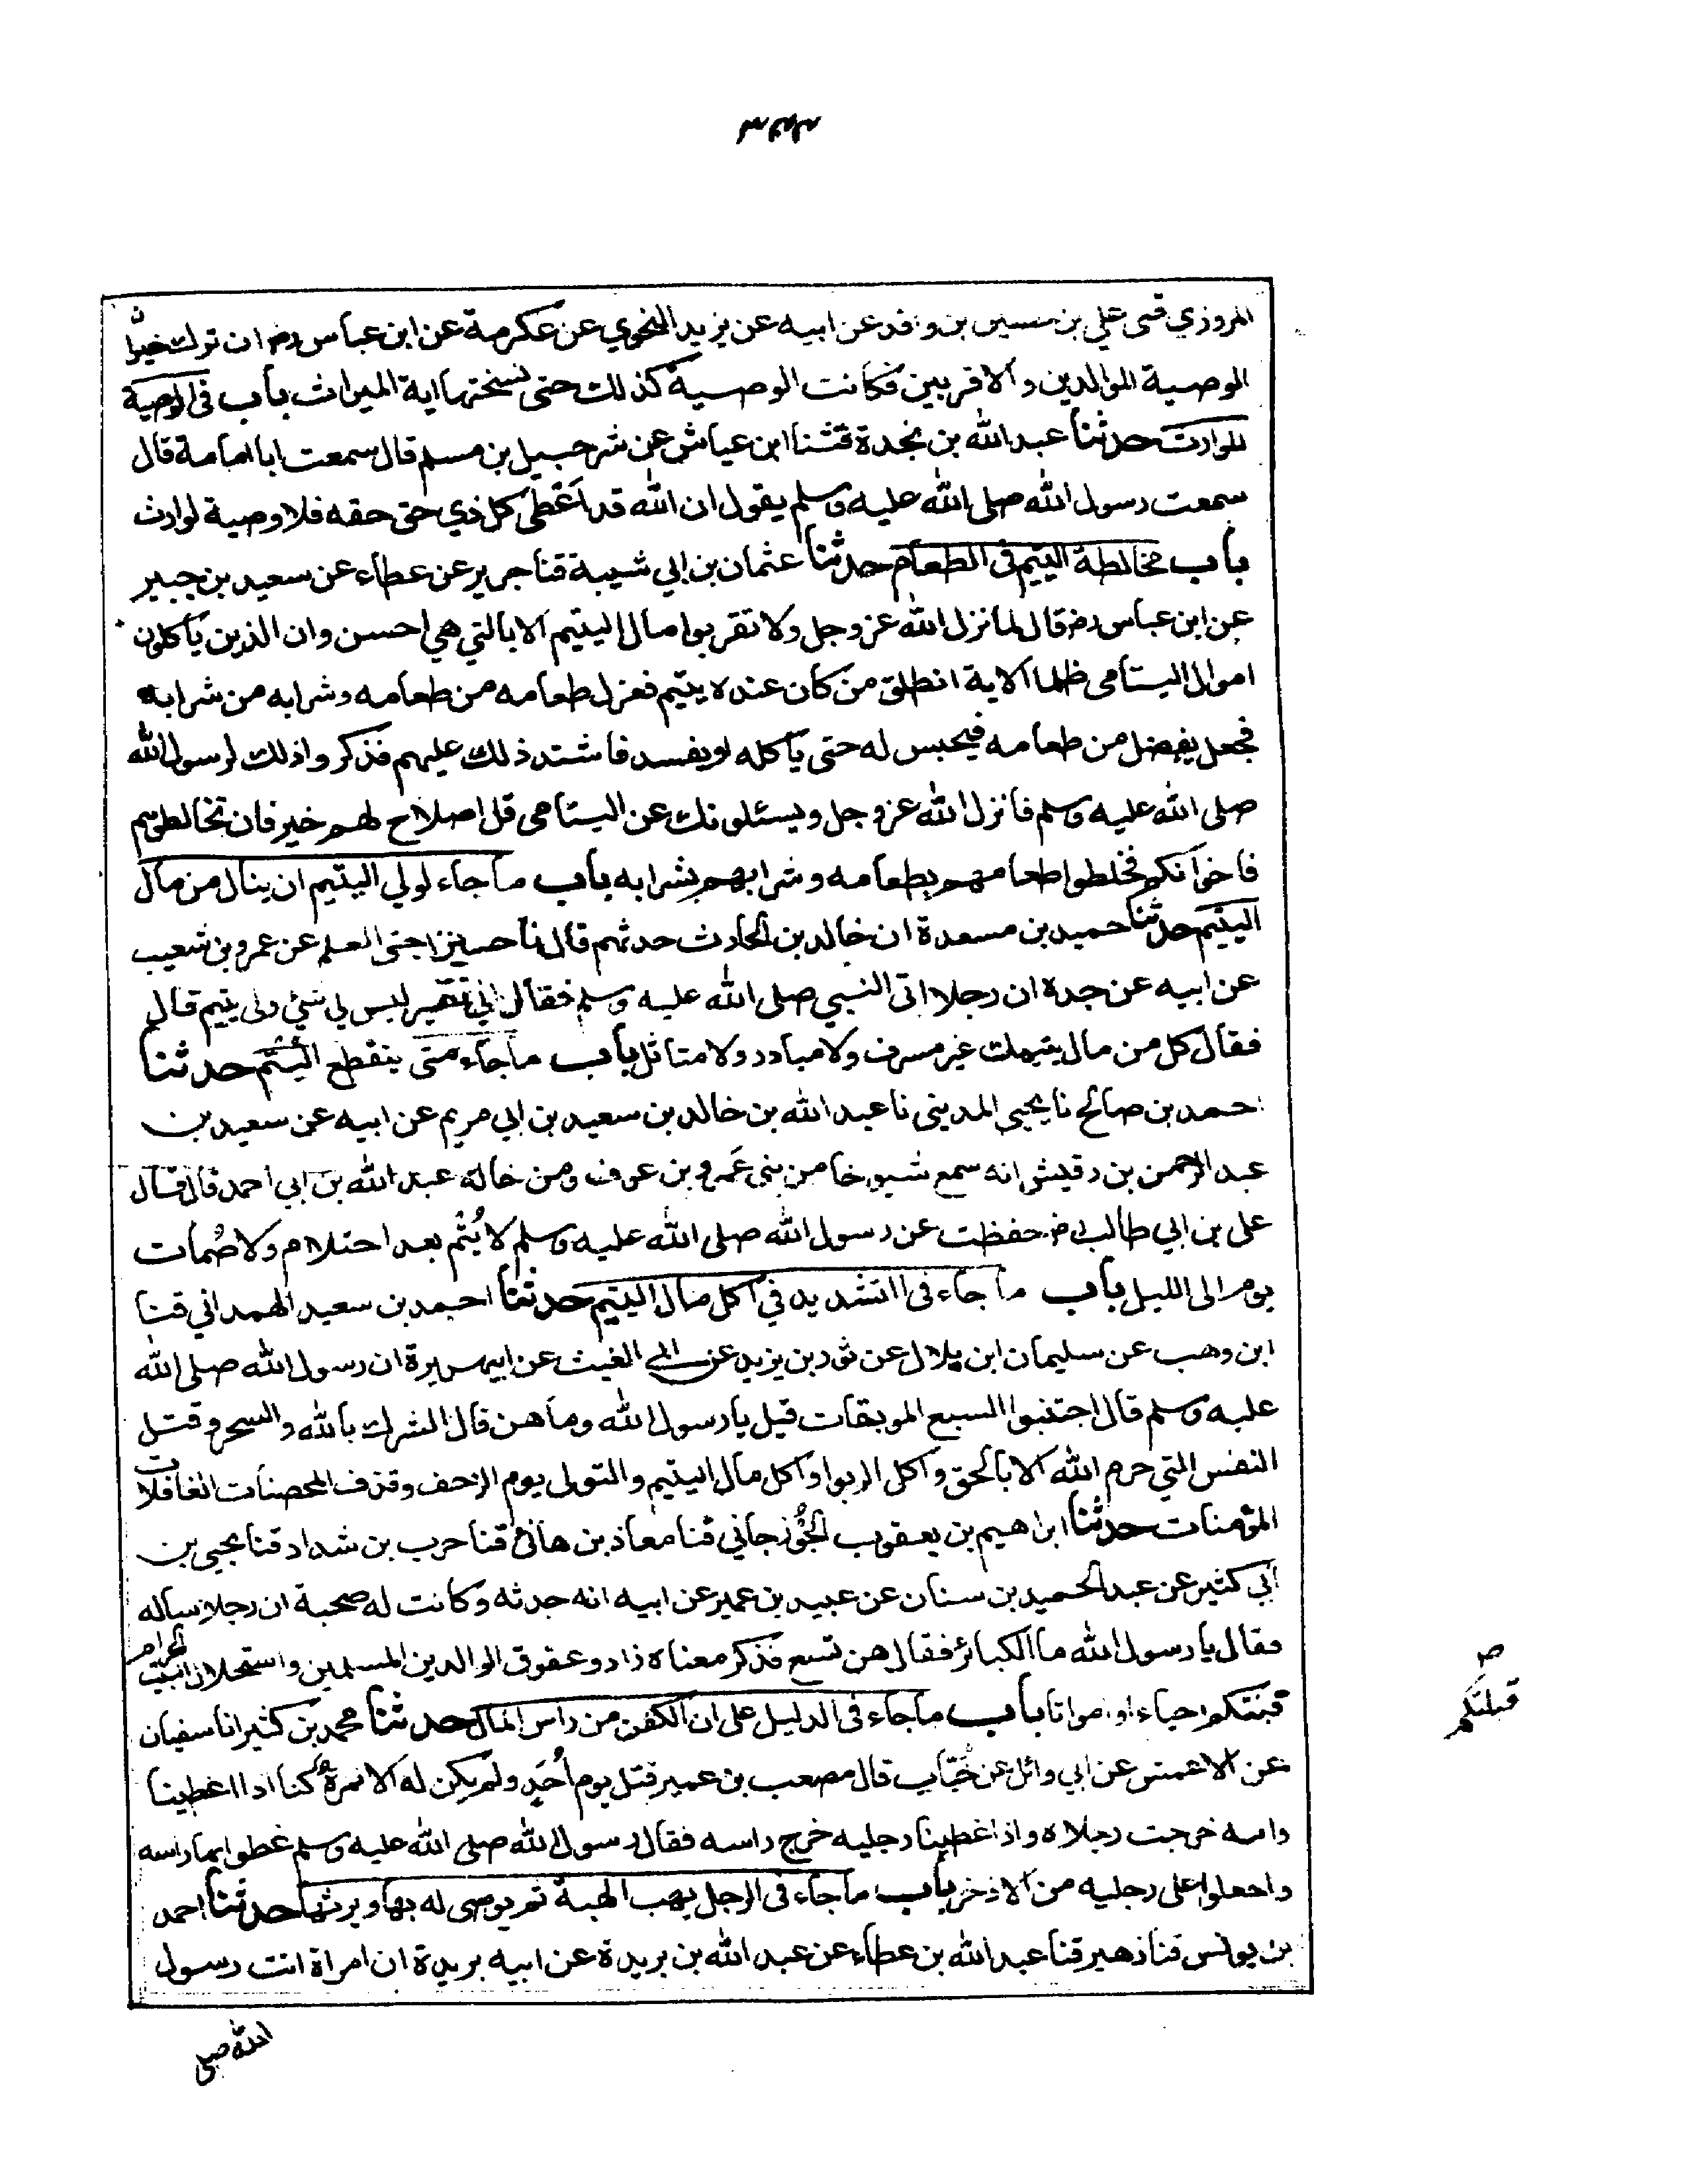 المروزي قثنى علي بن حسين بن واقد عن ابيه عن يزيد النحوي عن عكرمة عن ابن عباس رضـ ان ترك خيرا
الوصية للوالدين والاقربين فكانت الوصية كذلك حتى نسختها اية الميراث باب في الوصية
للوارث حدثنا عبد الله بن نجدة قثنا ابن عياش عن شرحبيل بن مسلم قال سمعت ابا امامة قال
سمعت رسول الله صلى الله عليه وسلم يقول ان الله قد اعطى كل ذي حق حقه فلا وصية لوارث
باب مخالطة اليتيم في الطعام حدثنا عثمان بن ابي شيبة قثنا جرير عن عطاء عن سعيد بن جبير
عن ابن عباس رضـ قال لما نزل الله عز وجل ولا تقربوا مال اليتيم الا بالتي هي احسن وان الذين يأكلون
اموال اليتامى ظلما الاية انطلق من كان عنده يتيم فعزل طعامه من طعامه وشرابه من شرابه
فجعل يفضل من طعامه فيحبس له حتى يأكله او يفسد فاشتد ذلك عليهم فذكروا ذلك لرسول الله
صلى الله عليه وسلم فانزل الله عز وجل ويسئلونك عن اليتامى قل اصلاح لهم خير فان تخالطوهم
فاخوانكم فخلطوا طعامهم بطعامه وشرابهم بشرابه باب ما جاء لولي اليتيم ان ينال من مال
اليتيم حدثنا حميد بن مسعدة ان خالد بن الحارث حدثهم قال نا حسين المعلم عن عمرو بن شعيب
عن ابيه عن جده ان رجلا اتى النبي صلى الله عليه وسلم فقال اني فقير ليس لي شئ ولى يتيم قال
فقال كل من مال يتيمك غير مسرف ولا مبادر ولا متاثل باب ما جاء متى ينقطع اليتم حدثنا
احمد بن صالح نا يحيى المديني نا عبد الله بن خالد بن سعيد بن ابي مريم عن ابيه عن سعيد بن
عبد الرحمن بن رقيش انه سمع شيوخا من بني عَمرو بن عوف ومن خاله عبد الله بن ابي احمد قال قال
على بن ابي طالب رضـ حفظت عن رسول الله صلى الله عليه وسلم لا يُتْم بعد احتلام ولا صُمات
يوم الى الليل باب ما جاء في التشديد في اكل مال اليتيم حدثنا احمد بن سعيد الهمداني قثنا
ابن وهب عن سليمان ابن بلال عن ثور بن يزيد عن ابي الغيث عن ابي هريرة ان رسول الله صلى الله
عليه وسلم قال اجتنبوا السبع الموبقات قيل يا رسول الله وما هن قال الشرك بالله والسحر وقتل
النفس التي حرم الله الا بالحق واكل الربوا واكل مال اليتيم والتولى يوم الزحف وقذف المحصنات الغافلات
المؤمنات حدثنا ابراهيم بن يعقوب الجُوْزجاني قثنا معاذ بن هانئ قثنا حرب بن شداد قثنا يحيى بن
ابي كثير عن عبد الحميد بن سنان عن عبيد بن عمير عن ابيه انه حدثه وكانت له صحبة ان رجلا ساله
فقال يا رسول الله ما الكبائر فقال هن تسع فذكر معناه زاد وعقوق الوالدين المسلمين واستحلال البيت الحرام
قبلتكم احياء او امواتا باب ما جاء في الدليل على ان الكفن من راس المال حدثنا محمد بن كثير انا سفيان
عن الاعمش عن ابي وائل عن خَبّاب قال مصعب بن عمير قتل يوم اُحُدٍ ولم يكن له الا نمرة كنا اذا غطينا
راسه خرجت رجلاه واذا غطينا رجليه خرج راسه فقال رسول الله صلى الله عليه وسلم غطوا بها راسه
واجعلوا على رجليه من الاذخر باب ما جاء في الرجل يهب الهبة ثم يوصى له بها ويرثها حدثنا احمد
بن يونس قثنا زهير قثنا عبد الله بن عطاء عن عبد الله بن بريدة عن ابيه بريدة ان امراة اتت رسول
الله صلى
صـ
قبلتكم